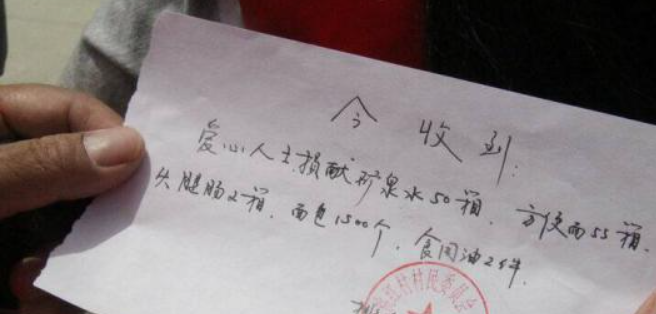 今收到:
爱心人士捐献矿泉水50箱、方便面55箱、
火腿肠2箱、面包1500个、食用油2件.
村村民委员会